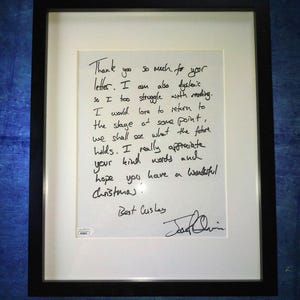 Thank you so much for your
letter. I am also dyslexic
so I too struggle with reading.
I would love to return to
the stage at some point,
we shall see what the future
holds. I really appreciate
your kind words and
hope you have a wonderful
Christmas.
Best Wishes